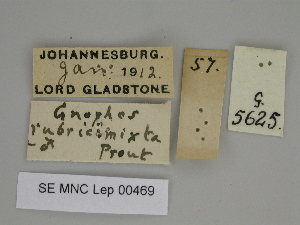 JOHANNESBURG.
Jan: 1912.
LORD GLADSTONE
Gnophos
rubricimixta
♂ Prout
57.
G.
5625.
SE MNC Lep 00469